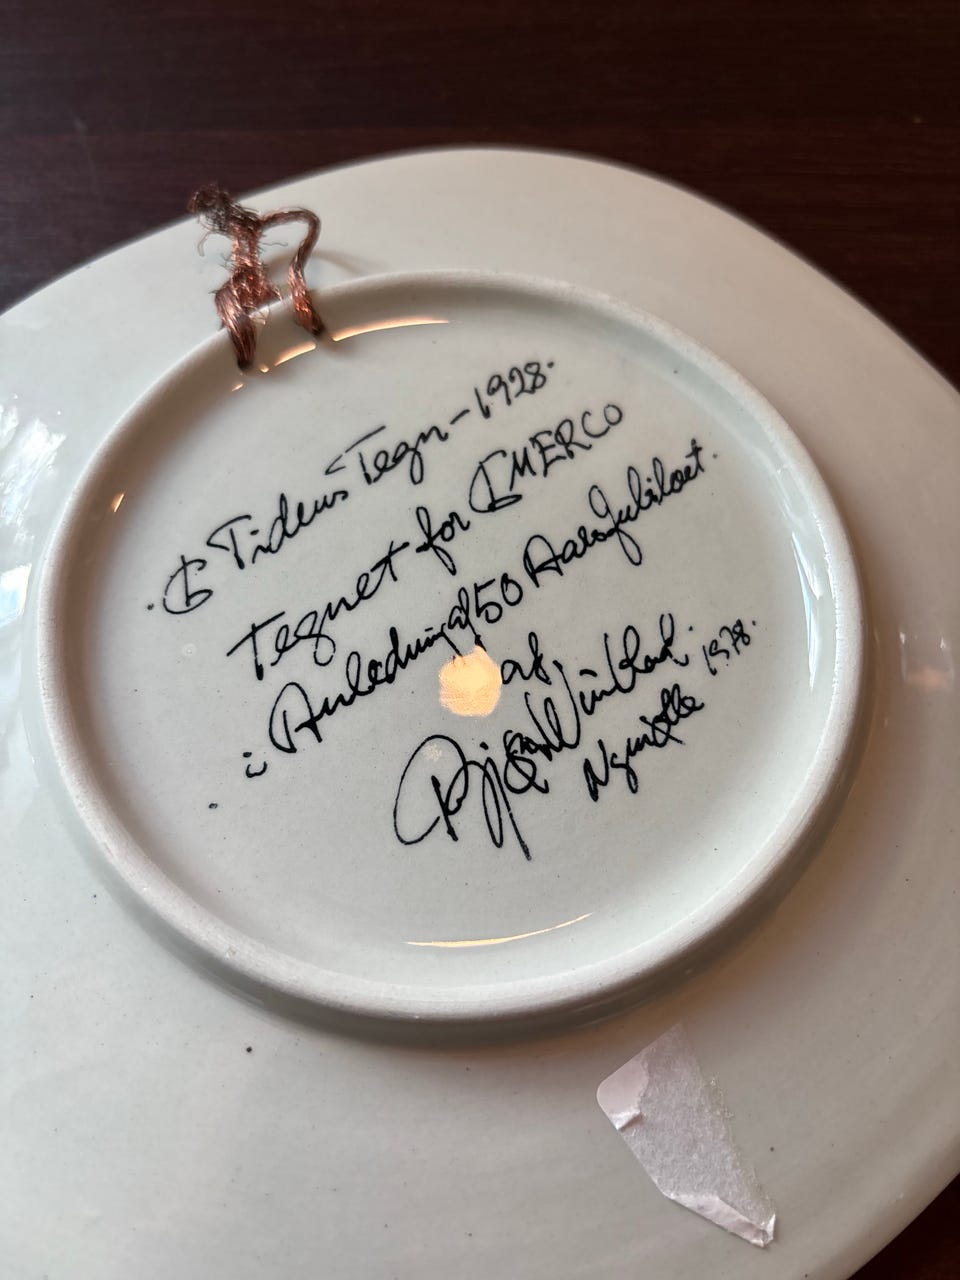 Et Tidens Tegn - 1928.
Tegnet for EMERCO
i Anledning af 50 Aars Jubilæet.
af.
Bjørn Wiinblad. 1978.
Nymølle